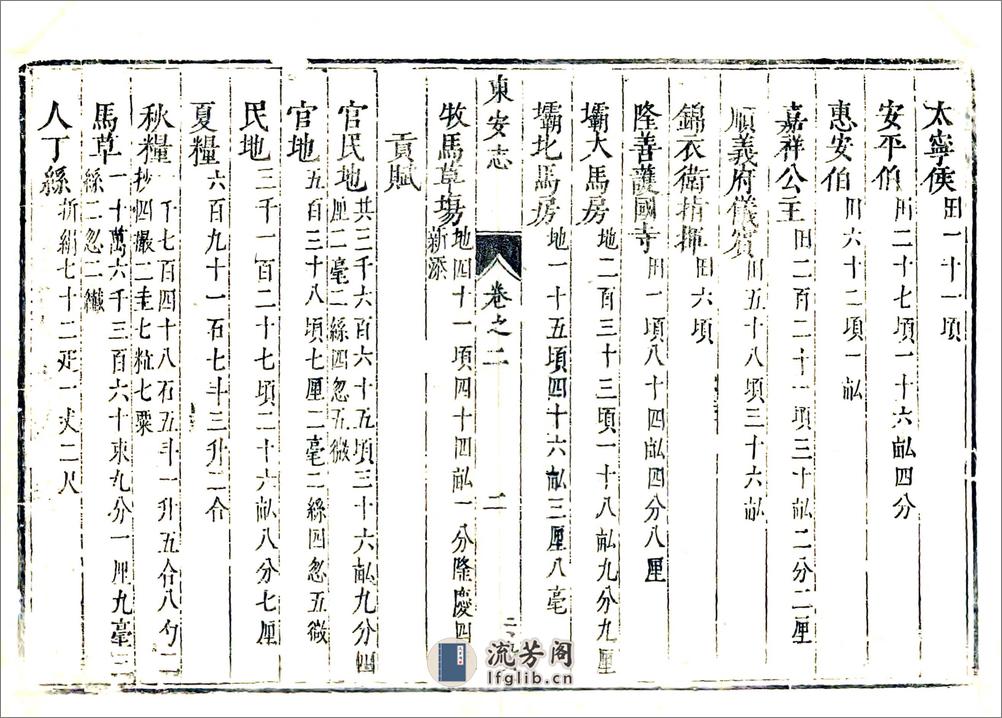 太寧侯田一十一頃
安平伯所二十七頃一十六畝四分
惠安伯田六十二頃一畝
嘉祥公主田二百二十一頃三十畝二分二厘
順義府儀賓田五十八頃三十六畝
錦衣衛指揮田六頃
隆善護國寺田一頃八十四畝四分八厘
壩大馬房地二百三十三頃一十八畝九分九厘
壩北馬房地一十五頃四十六畝三厘八毫
東安志 卷之二 二
牧馬草塲地四十一頃四十四畝一分隆慶四
新添
貢賦
官民地共三千六百六十五頃三十六畝九分四
厘二毫二絲四忽五微
官地五百三十八頃七厘二毫二絲四忽五微
民地三千一百二十七頃二十六畝八分七厘
夏糧六百九十一石七斗三升二合
秋糧一千七百四十八石五斗一升五合八勺二
抄四撮二圭七粒七粟
馬草一十萬六千三百六十束九分一厘九毫三
絲二忽二纎
人丁絲折絹七十二疋一丈二尺
流芳阁
lfglib.cn